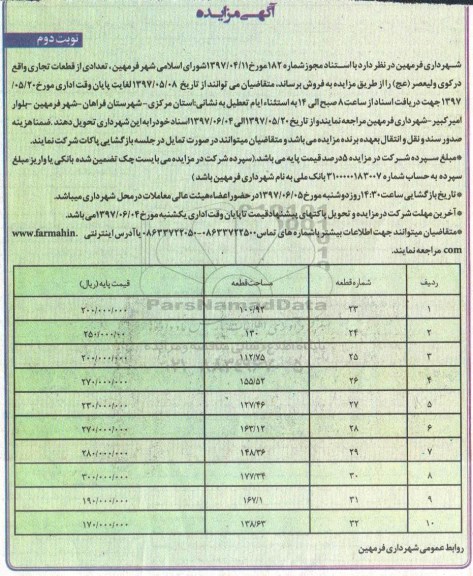 آگهی مزایده
نوبت دوم
شهرداری فرمهین در نظر دارد با استناد مجوز شماره ۱۸۲ مورخ ۱۳۹۷/۰۴/۱۱ شورای اسلامی شهر فرمهین ، تعدادی از قطعات تجاری واقع
در کوی ولیعصر (عج) را از طریق مزایده به فروش برساند، متقاضیان می توانند از تاریخ ۱۳۹۷/۰۵/۰۸ لغایت پایان وقت اداری مورخ ۰۵/۲۰/
۱۳۹۷ جهت دریافت اسناد از ساعت ۸ صبح الی ۱۴ به استثناء ایام تعطیل به نشانی: استان مرکزی - شهرستان فراهان - شهر فرمهین - بلوار
امیرکبیر - شهرداری فرمهین مراجعه نمایند و از تاریخ ۱۳۹۷/۰۵/۲۰ الی ۱۳۹۷/۰۶/۰۴ اسناد خود را به این شهرداری تحویل دهند. ضمنا هزینه
صدور سند و نقل و انتقال بعهده برنده مزایده می باشد و متقاضیان میتوانند در صورت تمایل در جلسه بازگشایی پاکات شرکت نمایند.
*مبلغ سپرده شرکت در مزایده ۵ درصد قیمت پایه می باشد.(سپرده شرکت در مزایده می بایست چک تضمین شده بانکی یا واریز مبلغ
سپرده به حساب شماره ۳۱۰۰۰۰۰۱۸۳۰۰۷ بانک ملی به نام شهرداری فرمهین باشد)
*تاریخ بازگشایی ساعت ۱۴:۳۰ روز دوشنبه مورخ ۱۳۹۷/۰۶/۰۵ در حضور اعضاء هیئت عالی معاملات در محل شهرداری میباشد.
*آخرین مهلت شرکت در مزایده و تحویل پاکتهای پیشنهاد قیمت تا پایان وقت اداری یکشنبه مورخ ۱۳۹۷/۰۶/۰۴ می باشد.
*متقاضیان میتوانند جهت اطلاعات بیشتر با شماره های تماس ۰۸۶۳۳۷۲۲۵۰۰-۰۸۶۳۳۷۲۲۰۵۰ یا آدرس اینترنتی www.farmahin.
com مراجعه نمایند.
ردیف شماره قطعه مساحت قطعه قیمت پایه (ریال)
۱ ۲۳ ۱۰۰/۹۳ ۲۰۰/۰۰۰/۰۰۰
۲ ۲۴ ۱۳۰ ۲۵۰/۰۰۰/۰۰۰
۳ ۲۵ ۱۱۲/۷۵ ۲۰۰/۰۰۰/۰۰۰
۴ ۲۶ ۱۵۵/۵۲ ۲۷۰/۰۰۰/۰۰۰
۵ ۲۷ ۱۲۷/۴۶ ۲۳۰/۰۰۰/۰۰۰
۶ ۲۸ ۱۶۳/۱۲ ۲۷۰/۰۰۰/۰۰۰
۷ ۲۹ ۱۴۸/۳۶ ۲۸۰/۰۰۰/۰۰۰
۸ ۳۰ ۱۷۷/۳۴ ۳۰۰/۰۰۰/۰۰۰
۹ ۳۱ ۱۶۷/۱ ۱۹۰/۰۰۰/۰۰۰
۱۰ ۳۲ ۱۳۸/۶۳ ۱۷۰/۰۰۰/۰۰۰
ParsNamadData
روابط عمومی شهرداری فرمهین